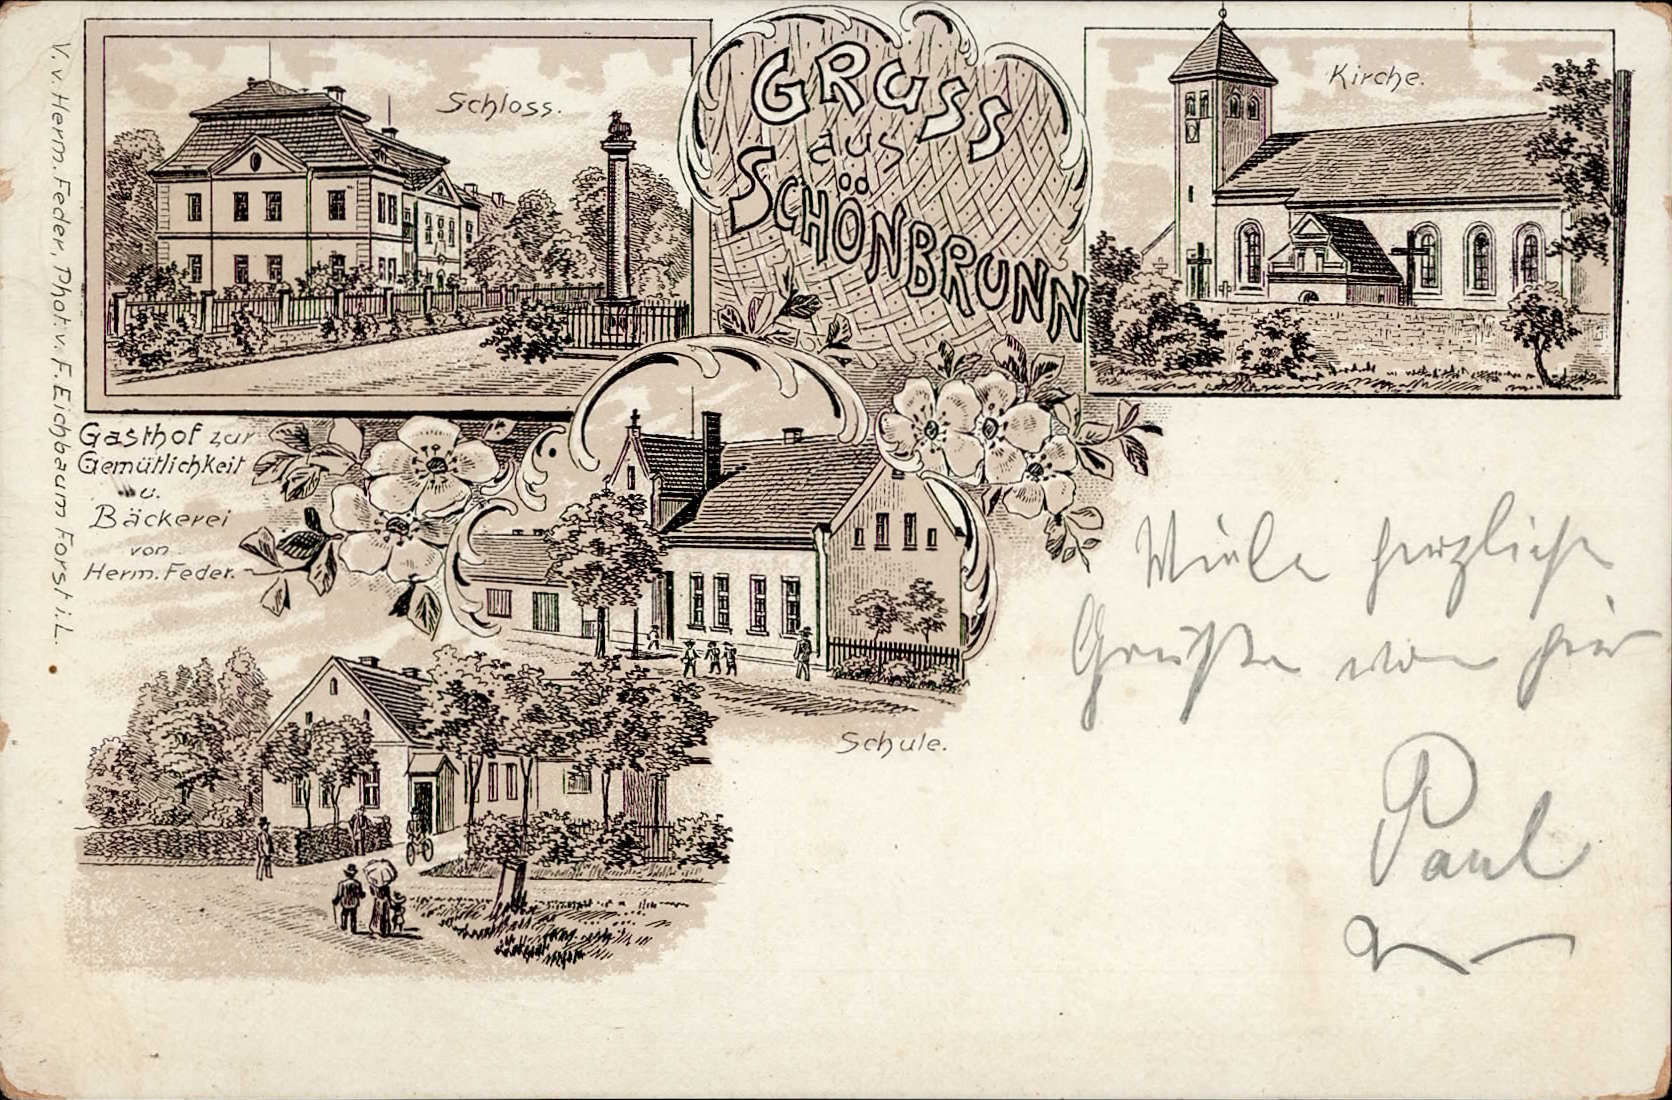 Schloss.
GRUSS
aus
SCHÖNBRUNN
Kirche.
V. v. Herm. Feder, Phot. v. F. Eichbaum Forst i. L.
Gasthof zur
Gemütlichkeit
u.
Bäckerei
von
Herm. Feder.
Schule.
Viele herzliche
Grüße von hier
Paul